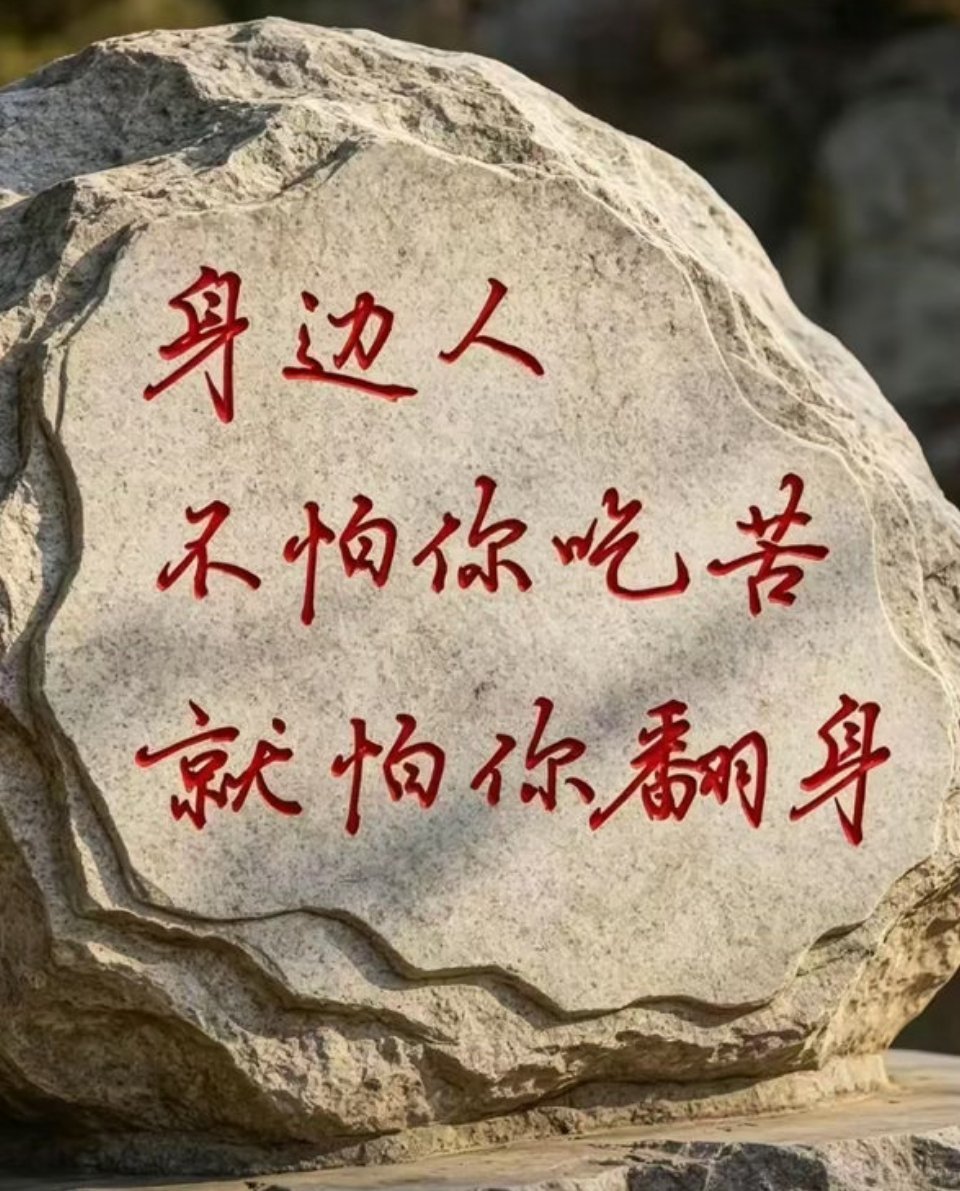 身边人
不怕你吃苦
就怕你翻身